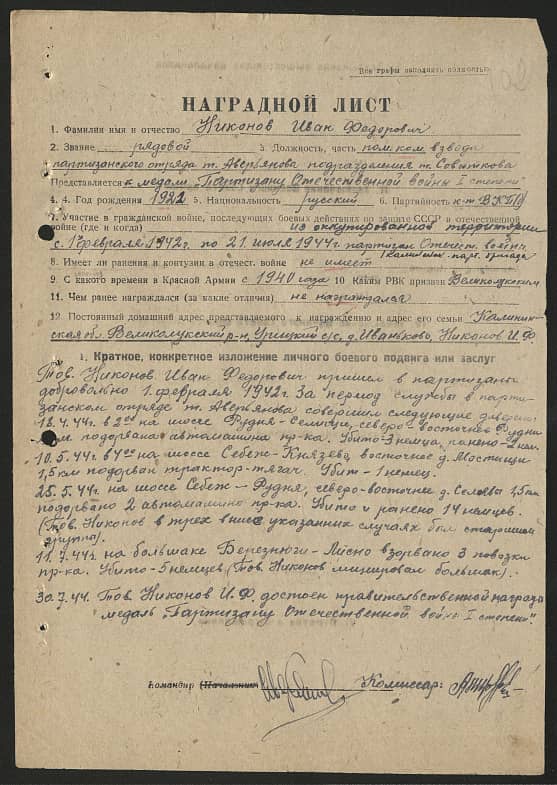 Все графы заполнять полностью
НАГРАДНОЙ ЛИСТ
1. Фамилия имя и отчество Никонов Иван Федорович
2. Звание рядовой 3. Должность, часть пом. ком. взвода
партизанского отряда т. Аверьянова подразделения т.
Представляется к медали "Партизану Отечественной войны I степени"
4. 4. Год рождения 1922 5. Национальность русский 6. Партийность к-т ВКП(б)
7. Участие в гражданской войне, последующих боевых действиях по защите СССР и отечественной
войне (где и когда) на оккупированной территории
с 1 февраля 1942г. по 21 июля 1944г. партизан Отечест. войны
8. Имеет ли ранения и контузии в отечест. войне не имеет парт. бригада
9. С какого времени в Красной Армии с 1940 года 10 Каким РВК призван Великолукским
11. Чем ранее награждался (за какие отличия) не награждался
12. Постоянный домашний адрес представляемого к награждению и адрес его семьи Калинин-
ская обл. Великолукский р-н, Урицкий с/с, д. Иваньково, Никонов И.Ф.
1. Краткое, конкретное изложение личного боевого подвига или заслуг
Тов. Никонов Иван Федорович пришел в партизаны
добровольно 1. февраля 1942г. За период службы в парти-
занском отряде т. Аверьянова совершил следующие диверсии:
18.4.44г. в 2 00 на шоссе Рудня- северо-восточнее Рудни
км подорвана автомашина пр-ка. Убито-3 немца, ранено-2 нем.
10.5.44г. в 4 00 на шоссе Себеж-Князево, восточное д. Мостищи
1,5 км подорван трактор-тягач. Убит-1 немец.
25.5.44г. на шоссе Себеж-Рудня, северо-восточнее д. 1,5 км
подорвано 2 автомашины пр-ка. Убито и ранено 14 немцев.
(Тов. Никонов в трех выше указанных случаях был старшим
группы).
11.7.44г. на большаке Березнюги-Лисно взорвано 3 повозки
пр-ка. Убито-5 немцев (Тов. Никонов минировал большак).
30.7.44. Тов. Никонов И.Ф. достоен правительственной награды
медаль "Партизану Отечественной войны I степени".
Командир (Начальник) Комиссар: